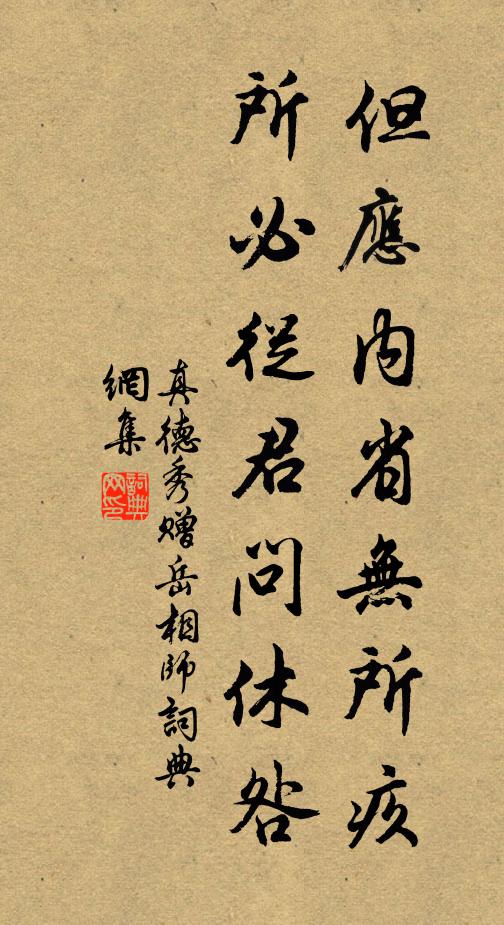 但應內省無所疚
所必從君問休咎
真德秀贈岳相師詞典
網集
詞典
网印